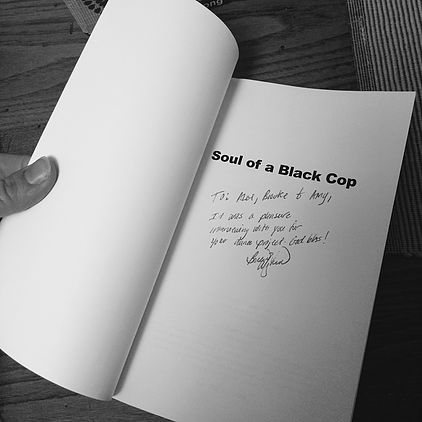 ng
Soul of a Black Cop
To: Abe, Brooke & Amy,
It was a pleasure
interviewing with you for
your drama project. God bless!